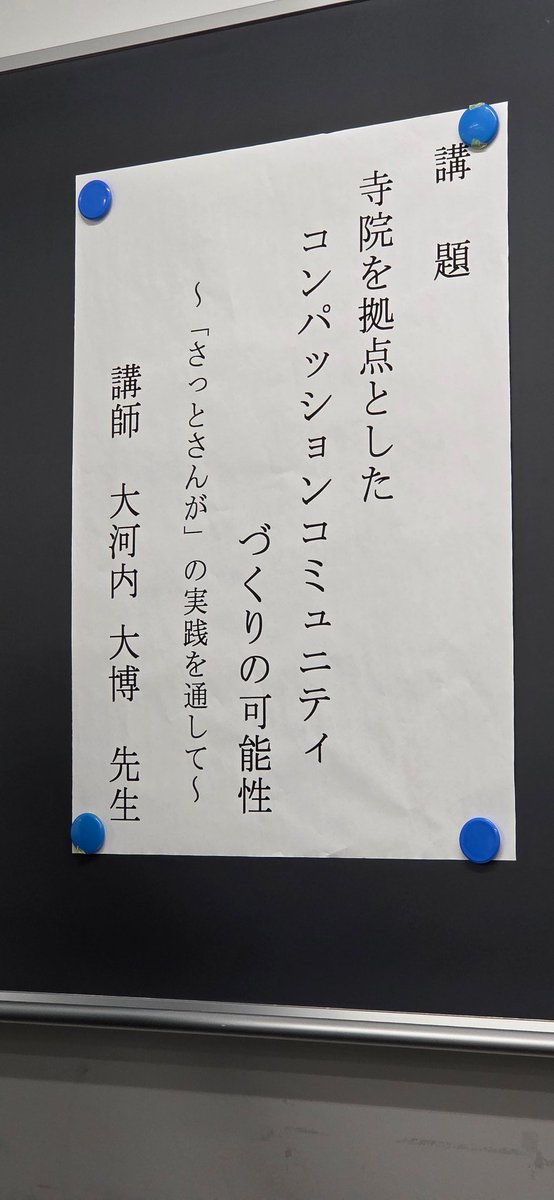 講 題
寺院を拠点とした
コンパッションコミュニティ
づくりの可能性
～「さっとさんが」の実践を通して～
講師 大河内 大博 先生